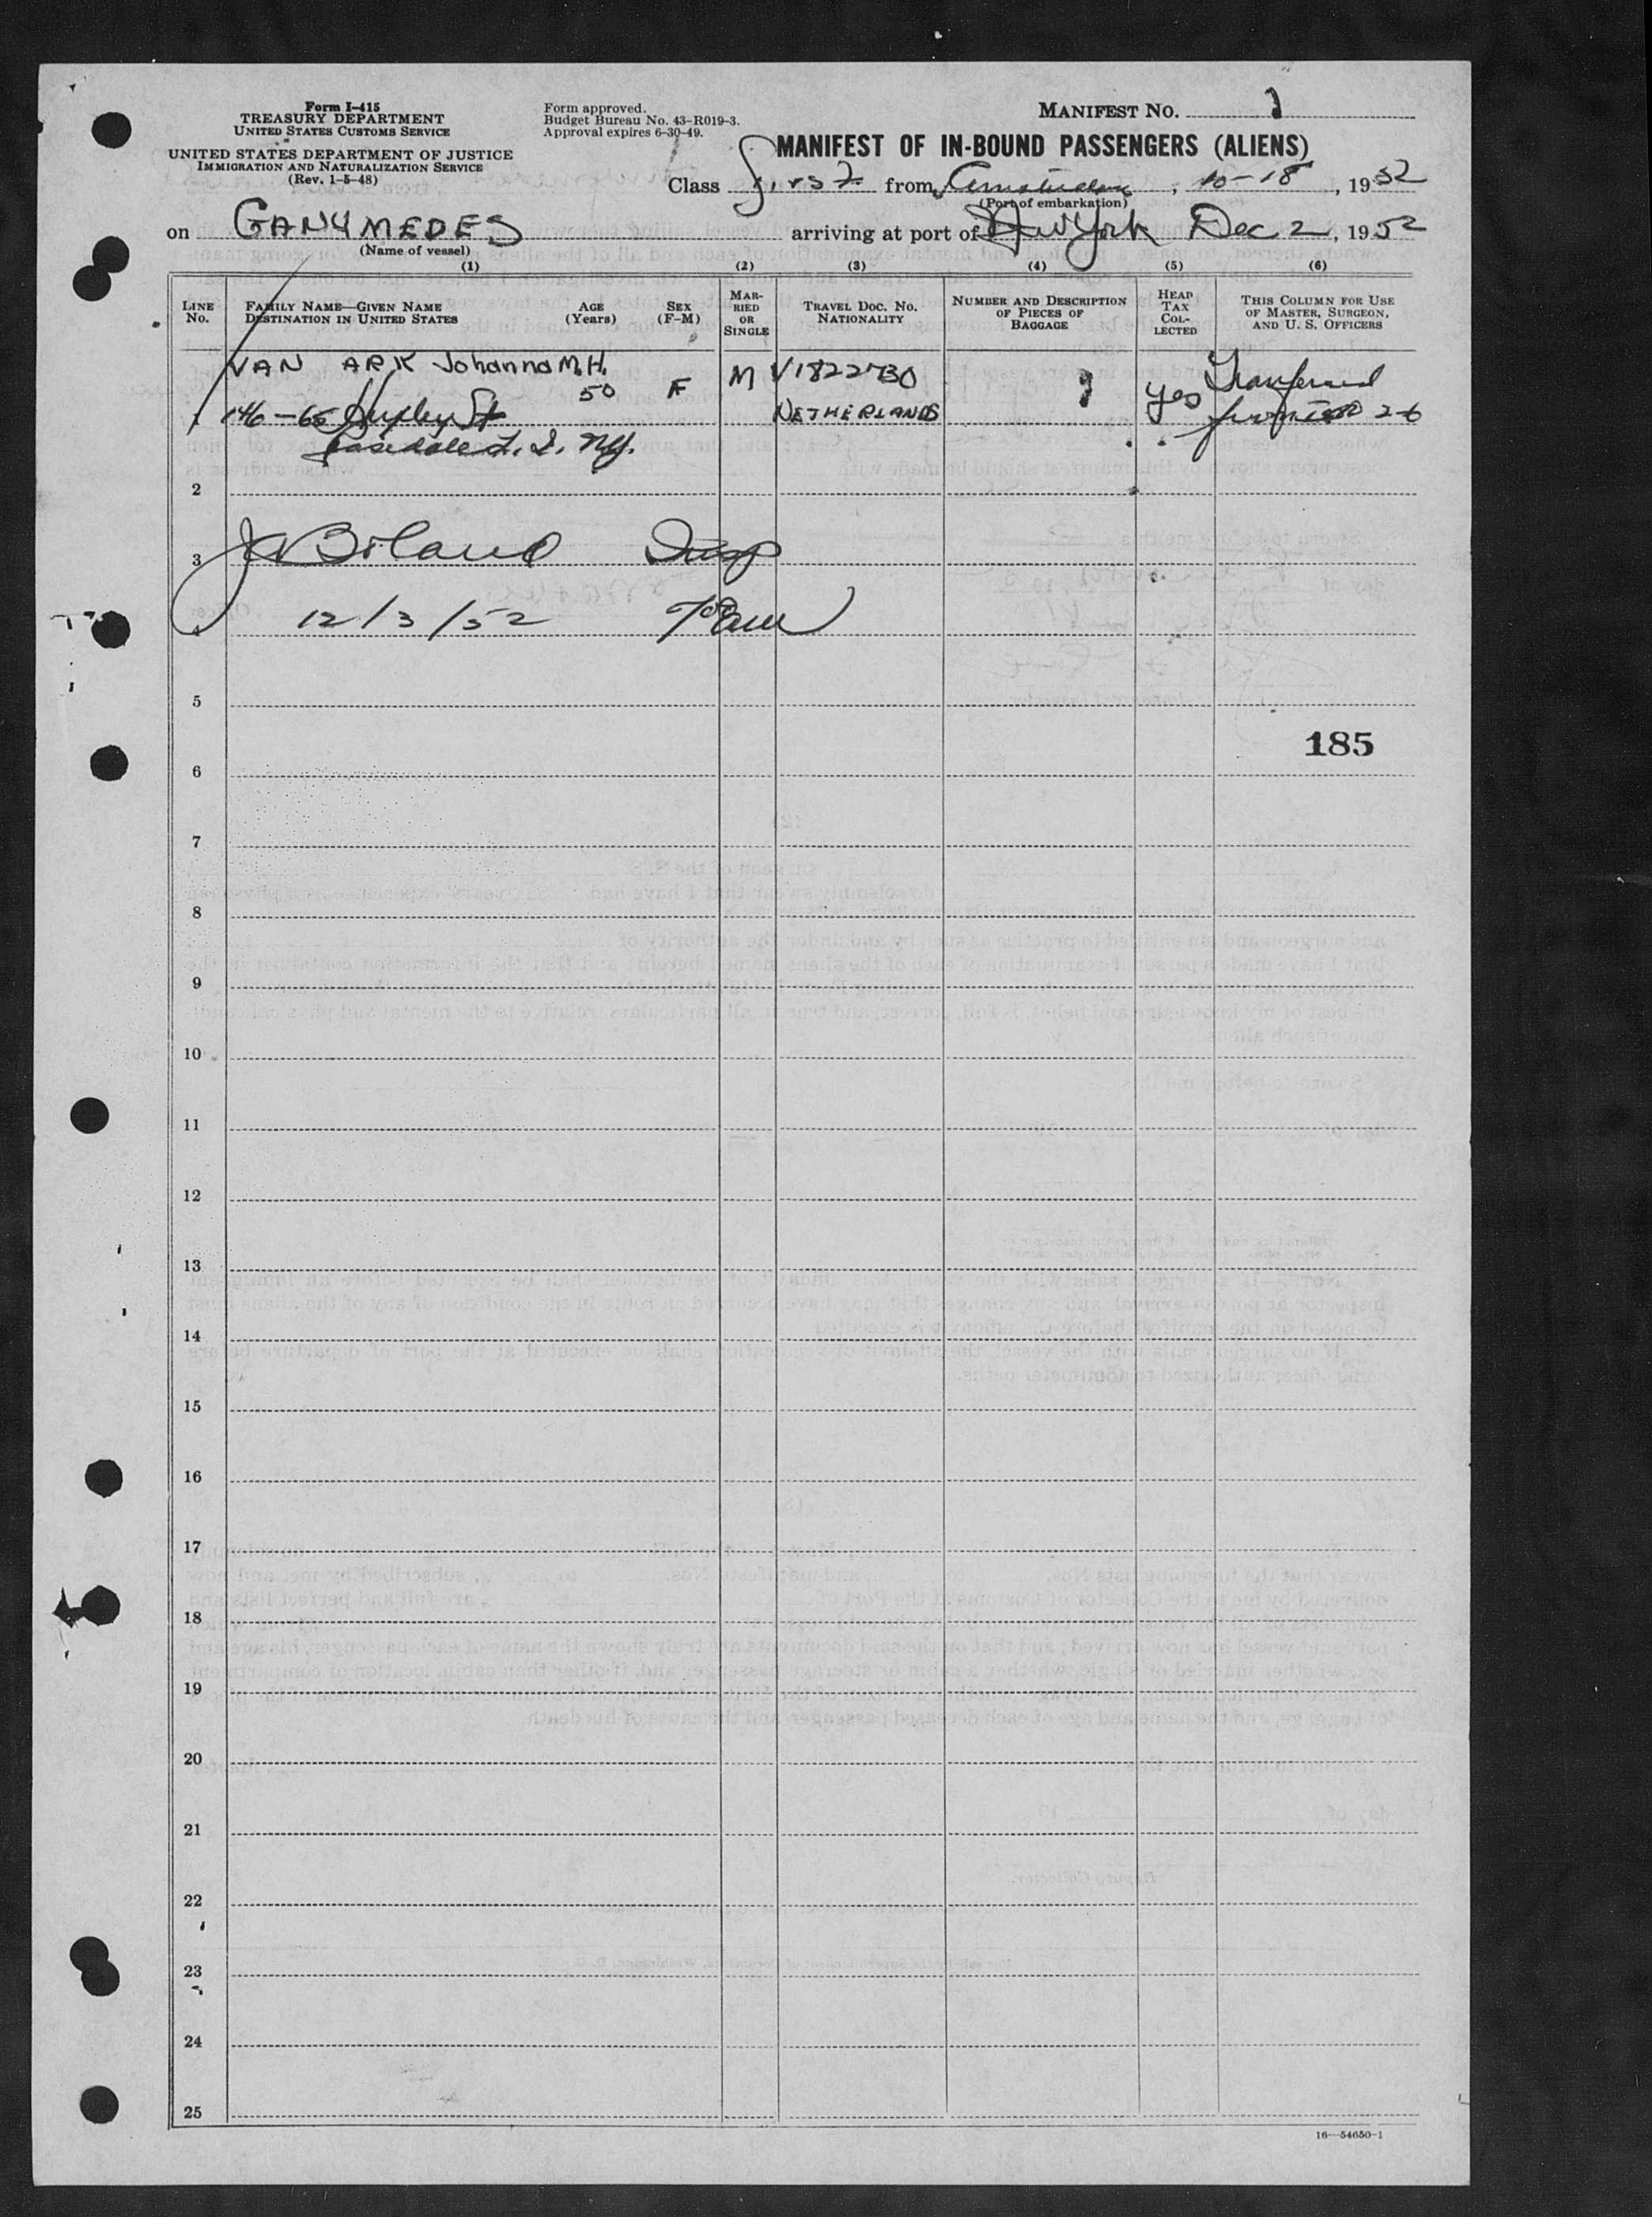 Form I-415
TREASURY DEPARTMENT
UNITED STATES CUSTOMS SERVICE
UNITED STATES DEPARTMENT OF JUSTICE
IMMIGRATION AND NATURALIZATION SERVICE
(Rev. 1-5-48)
Form approved.
Budget Bureau No. 43-R019-3.
Approval expires 6-30-49.
MANIFEST No. 1
MANIFEST OF IN-BOUND PASSENGERS (ALIENS)
Class First from Amsterdam, 10-18, 1952
(Port of embarkation)
on GANYMEDES arriving at port of New York Dec 2, 1952
(Name of vessel)
(1) (2) (3) (4) (5) (6)
LINE No. FAMILY NAME—GIVEN NAME DESTINATION IN UNITED STATES AGE (Years) SEX (F-M) MARRIED OR SINGLE TRAVEL DOC. NO. NATIONALITY NUMBER AND DESCRIPTION OF PIECES OF BAGGAGE HEAD TAX COLLECTED THIS COLUMN FOR USE OF MASTER, SURGEON, AND U. S. OFFICERS
VAN ARK Johanna M.H. 50 F M V1822730 yes Transferred
1 146-65 Huxley St NETHERLANDS from 2-6
Rosedale L. I. NY.
2
J Boland Insp
3
12/3/52
4
5
185
6
7
8
9
10
11
12
13
14
15
16
17
18
19
20
21
22
23
24
25
16—54650-1